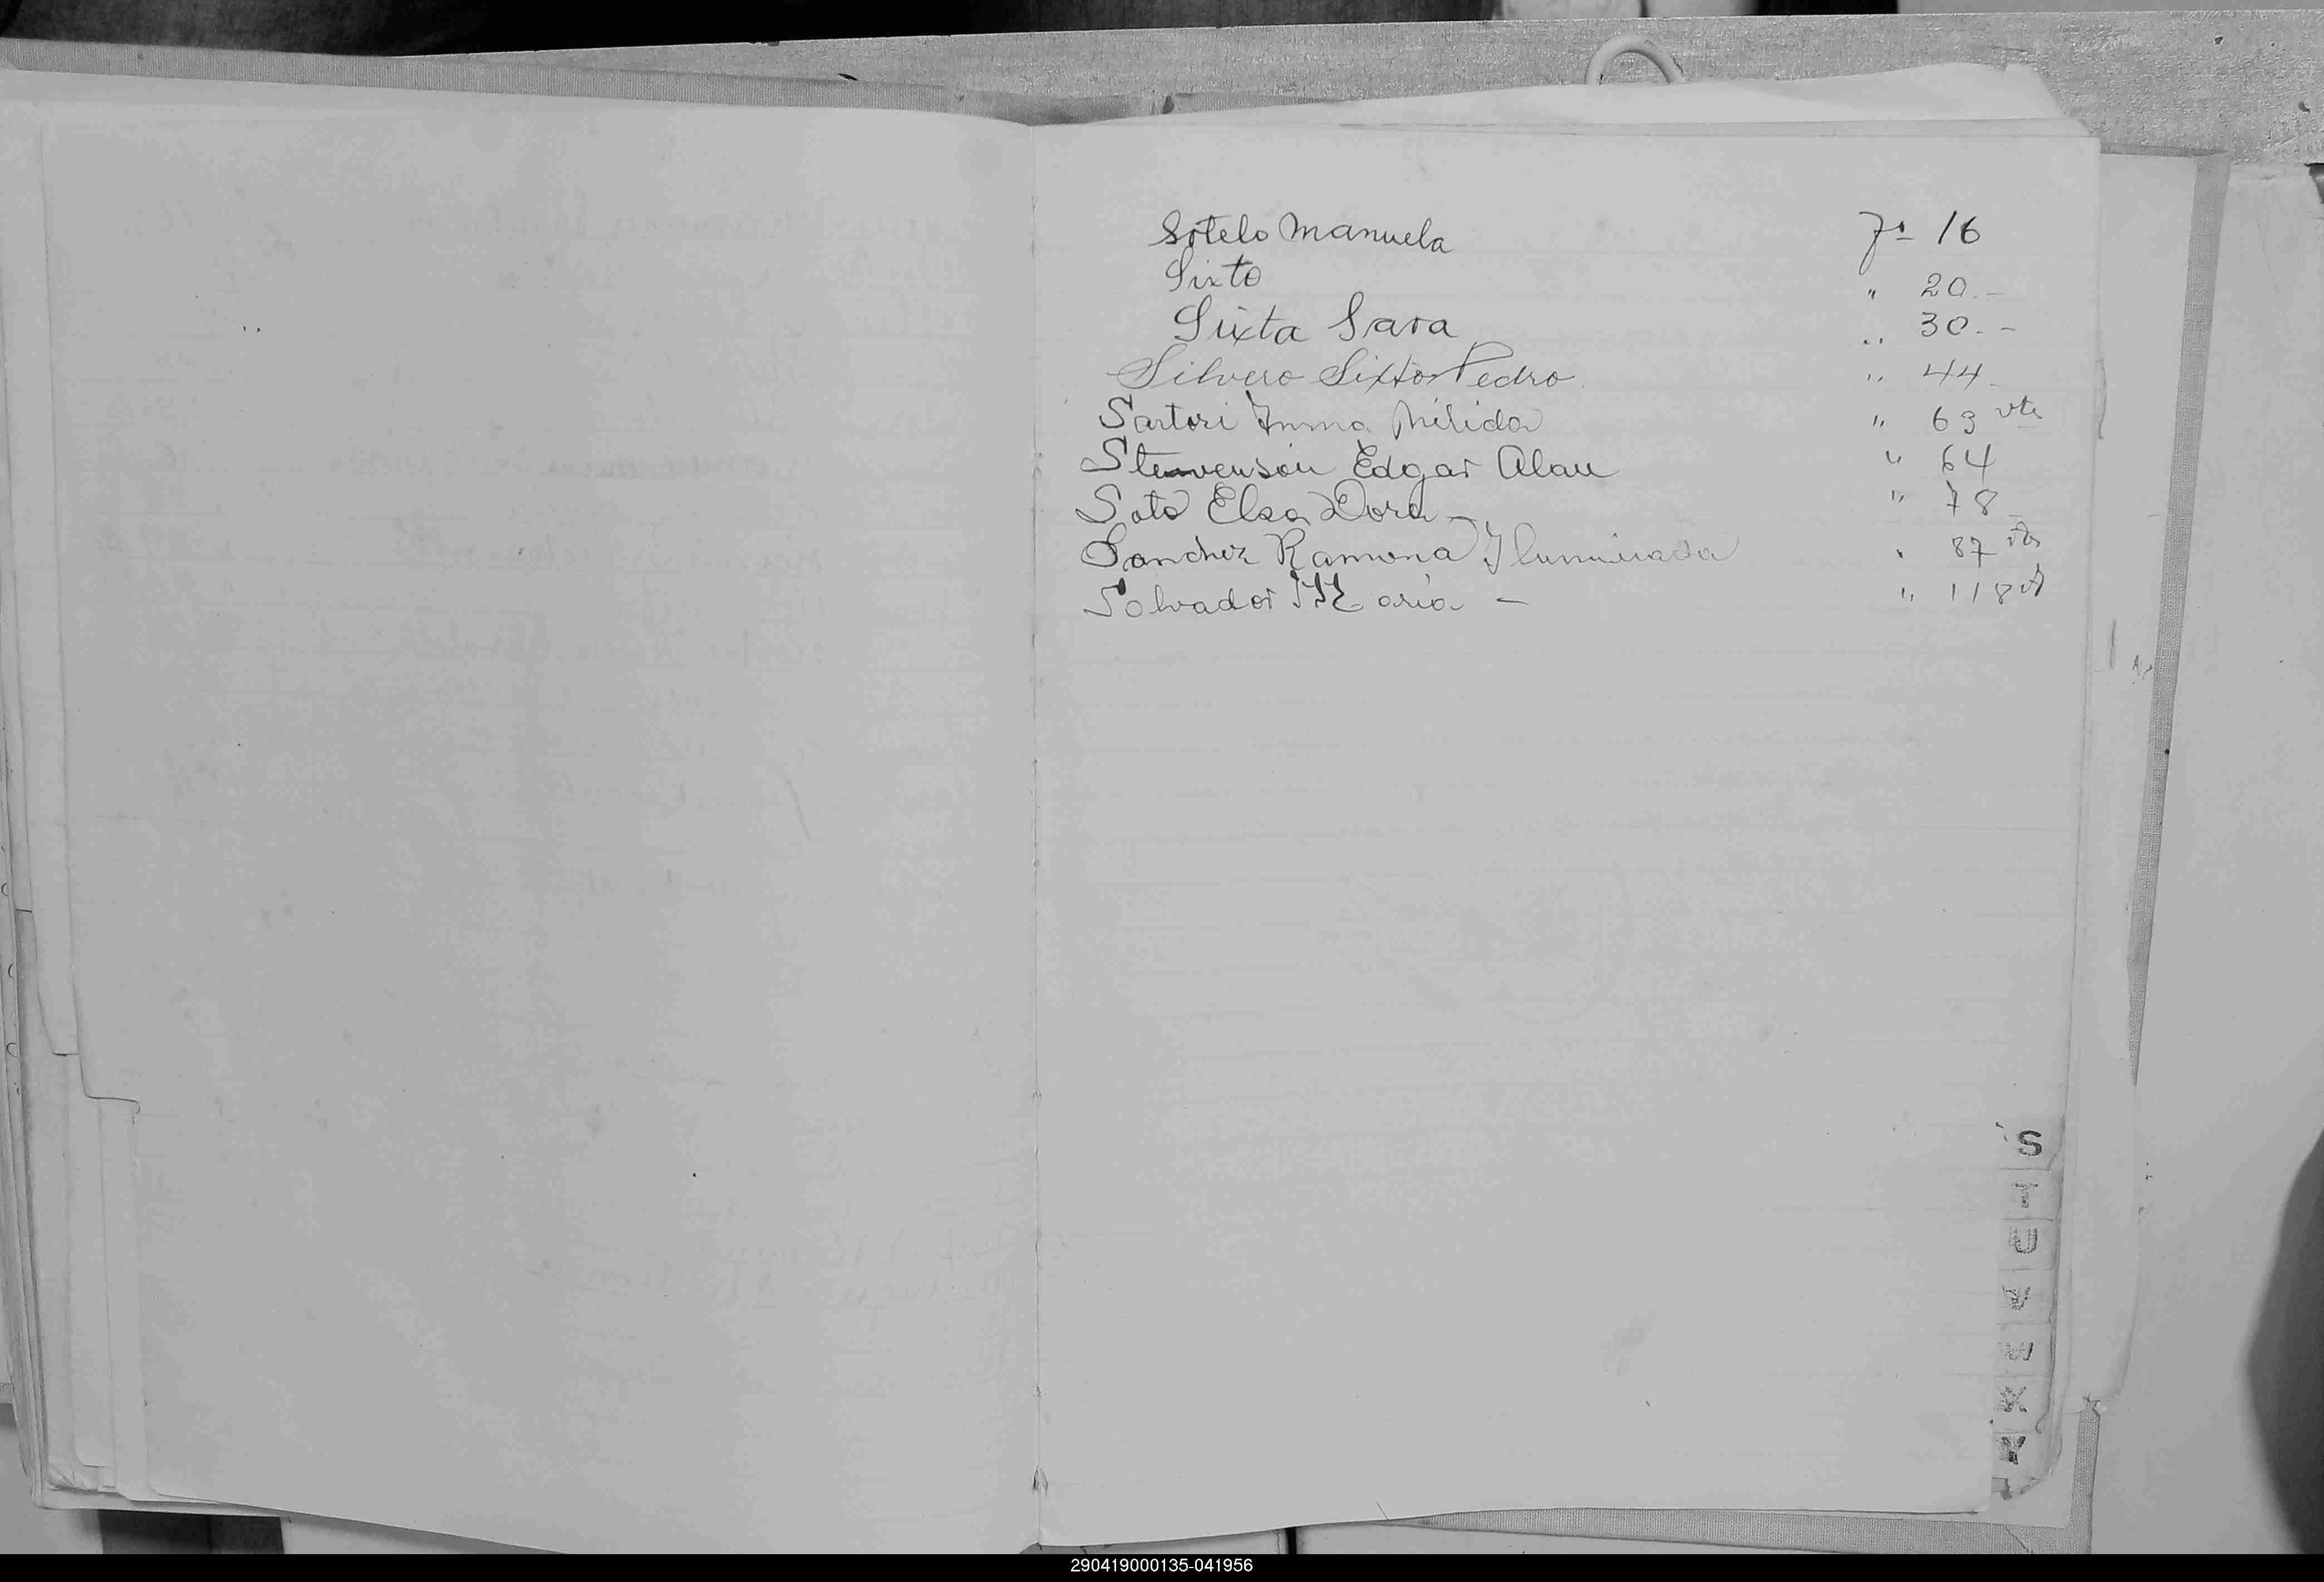 Sotelo Manuela Fº 16
Sixto " 20.-
Sixta Sara " 30.-
Silvero Sixto Pedro " 44
Sartori Inma Nilida " 63 vta
Stevenson Edgar Alan " 64
Soto Elsa Dora - " 78
Sanchez Ramona Iluminada " 87 vta
Salvador Maria - " 118 vt
S
T
U
V
W
X
Y
290419000135-041956